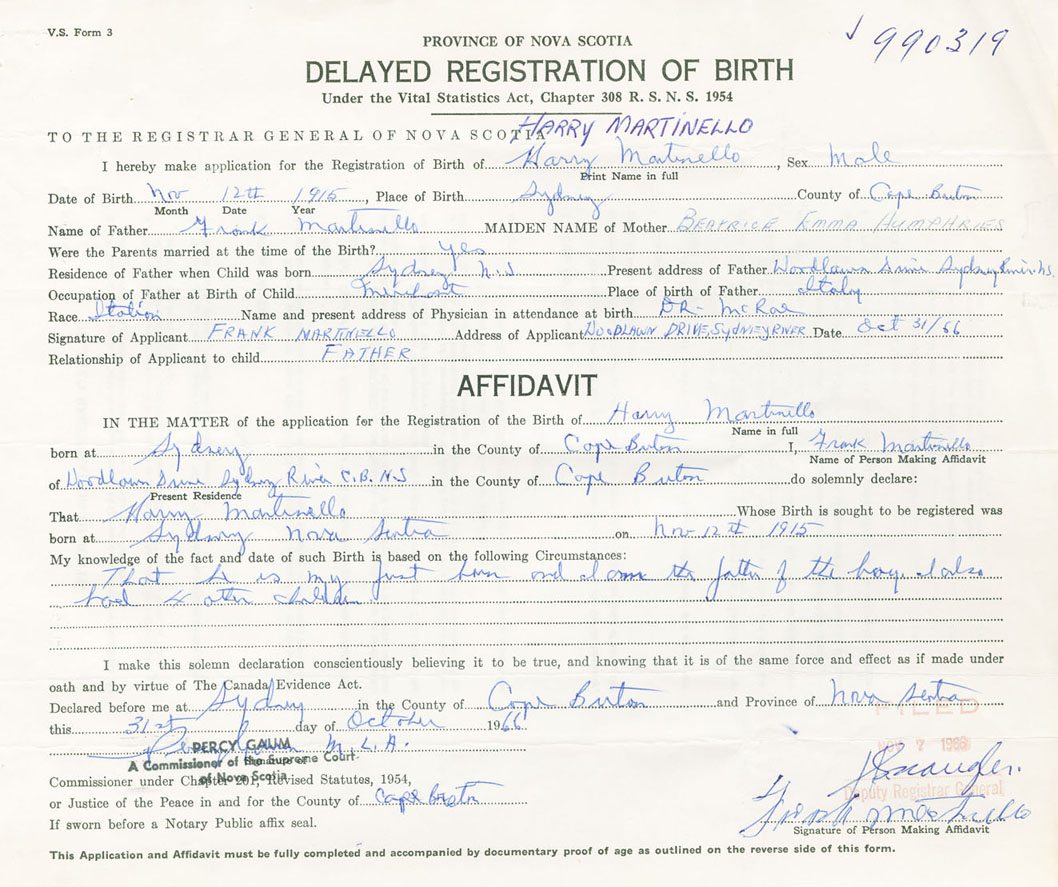 V.S. Form 3
990319
PROVINCE OF NOVA SCOTIA
DELAYED REGISTRATION OF BIRTH
Under the Vital Statistics Act, Chapter 308 R. S. N. S. 1954
HARRY MARTINELLO
TO THE REGISTRAR GENERAL OF NOVA SCOTIA
I hereby make application for the Registration of Birth of Harry Martinello, Sex Male
Print Name in full
Date of Birth Nov 12th 1915, Place of Birth Sydney County of Cape Breton
Month Date Year
Name of Father Frank Martinello MAIDEN NAME of Mother BEATRICE EMMA HUMPHRIES
Were the Parents married at the time of the Birth? Yes
Residence of Father when Child was born Sydney N.S Present address of Father Woodlawn Drive Sydney River N.S.
Occupation of Father at Birth of Child Merchant Place of birth of Father Italy
Race Italian Name and present address of Physician in attendance at birth DR. McRae
Signature of Applicant FRANK MARTINELLO Address of Applicant WOODLAWN DRIVE, SYDNEY RIVER Date Oct 31/66
Relationship of Applicant to child FATHER
AFFIDAVIT
IN THE MATTER of the application for the Registration of the Birth of Harry Martinello
Name in full
born at Sydney in the County of Cape Breton I, Frank Martinello
Name of Person Making Affidavit
of Woodlawn Drive Sydney River C.B. N.S in the County of Cape Breton do solemnly declare:
Present Residence
That Harry Martinello Whose Birth is sought to be registered was
born at Sydney Nova Scotia on Nov 12th 1915
My knowledge of the fact and date of such Birth is based on the following Circumstances:
That he is my first born and I am the father of the boy. I also
had 4 other children
I make this solemn declaration conscientiously believing it to be true, and knowing that it is of the same force and effect as if made under
oath and by virtue of The Canada Evidence Act.
Declared before me at Sydney in the County of Cape Breton and Province of Nova Scotia
this 31st day of October 1966
FILED
M.L.A.
PERCY GAUM
NOV 7 1966
A Commissioner of the Supreme Court
of Nova Scotia
Commissioner under Chapter 201, Revised Statutes, 1954,
Deputy Registrar General
or Justice of the Peace in and for the County of Cape Breton
Frank Martinello
If sworn before a Notary Public affix seal.
Signature of Person Making Affidavit
This Application and Affidavit must be fully completed and accompanied by documentary proof of age as outlined on the reverse side of this form.